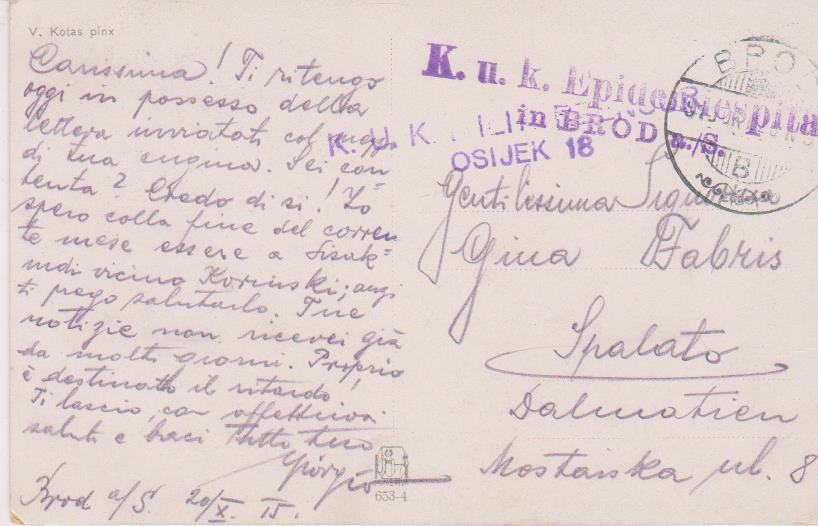 V. Kotas pinx
Carissima! Ti ritengo
oggi in possesso della
lettera inviatati col
di tua cugina. Sei con=
tenta? Credo di si! Io
spero colla fine del corren
te mese essere a Sisak=
indi vicino Korinski;
ti prego salutarlo. Tue
notizie non ricevei già
da molti giorni. Proprio
è destinato il ritardo!
Ti lascio, con affettuosi
saluti e baci tutto tuo
Giorgio
Brod a/S. 20/X. 15.
K. u. k. Epidemiespital
in BROD a./S.
K. U. K. MILIT
OSIJEK 18
BROD
B
Gentilissima Signorina
Gina Fabris
Spalato
Dalmatien
Mostarska ul. 8
653-4